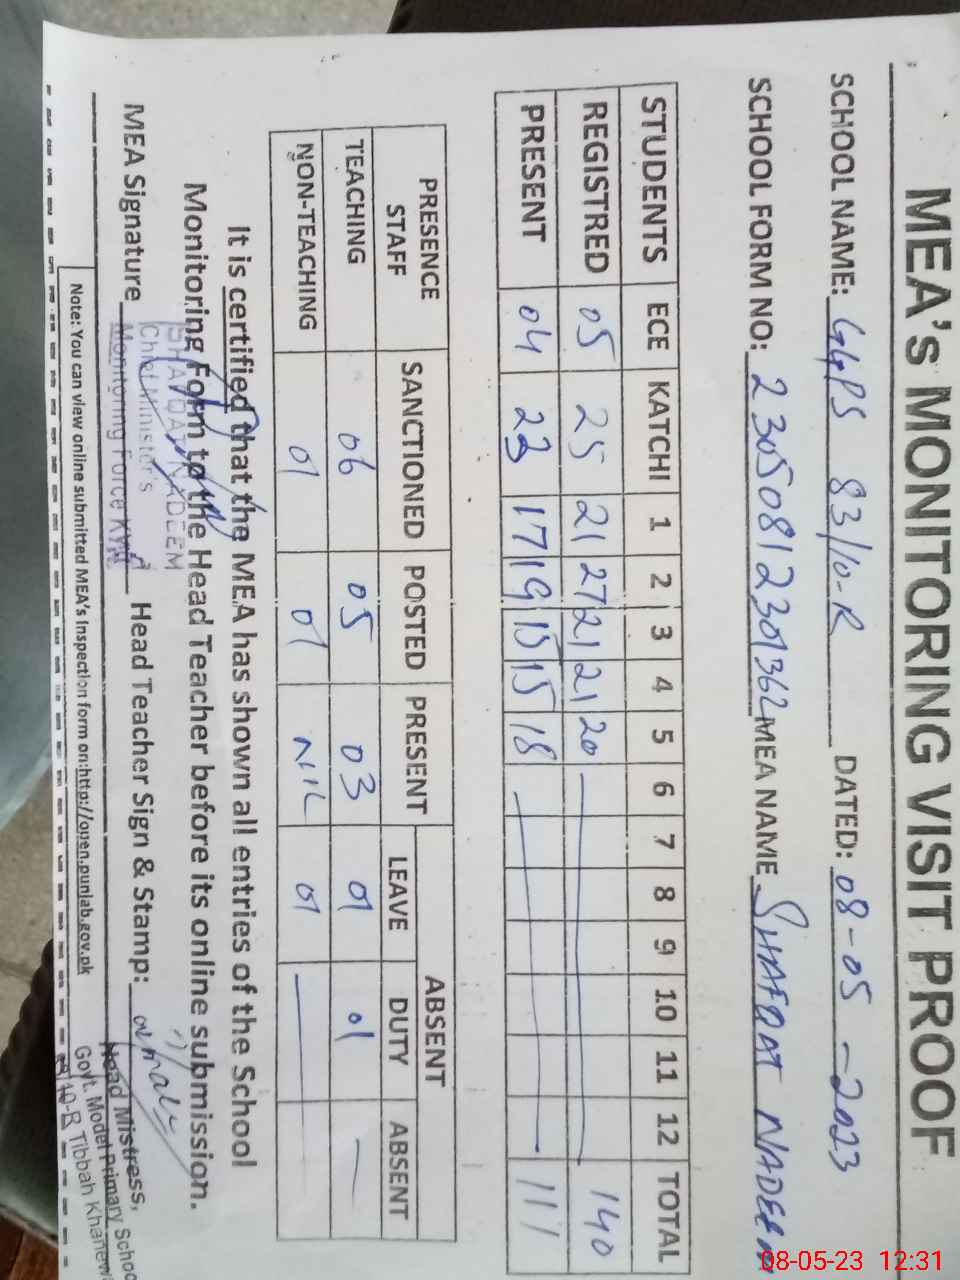 MEA's MONITORING VISIT PROOF
SCHOOL NAME: GGPS 83/10-R DATED: 08-05-2023
SCHOOL FORM NO: 23050812301362 MEA NAME SHAFQAT NADEEM
STUDENTS ECE KATCHI 1 2 3 4 5 6 7 8 9 10 11 12 TOTAL
REGISTRED 05 25 21 27 21 21 20 140
PRESENT 04 23 17 19 15 15 18 111
PRESENCE STAFF SANCTIONED POSTED PRESENT ABSENT
LEAVE DUTY ABSENT
TEACHING 06 05 03 01 01 —
NON-TEACHING 01 01 NIL 01 —
It is certified that the MEA has shown all entries of the School
Monitoring Form to the Head Teacher before its online submission.
MEA Signature Head Teacher Sign & Stamp:
SHAFQAT NADEEM
Chief Minister's
Monitoring Force KWL
Head Mistress,
Govt. Model Primary School
83/10-R Tibbah Khanewal
Note: You can view online submitted MEA's Inspection form on:http://open.punjab.gov.pk
08-05-23 12:31